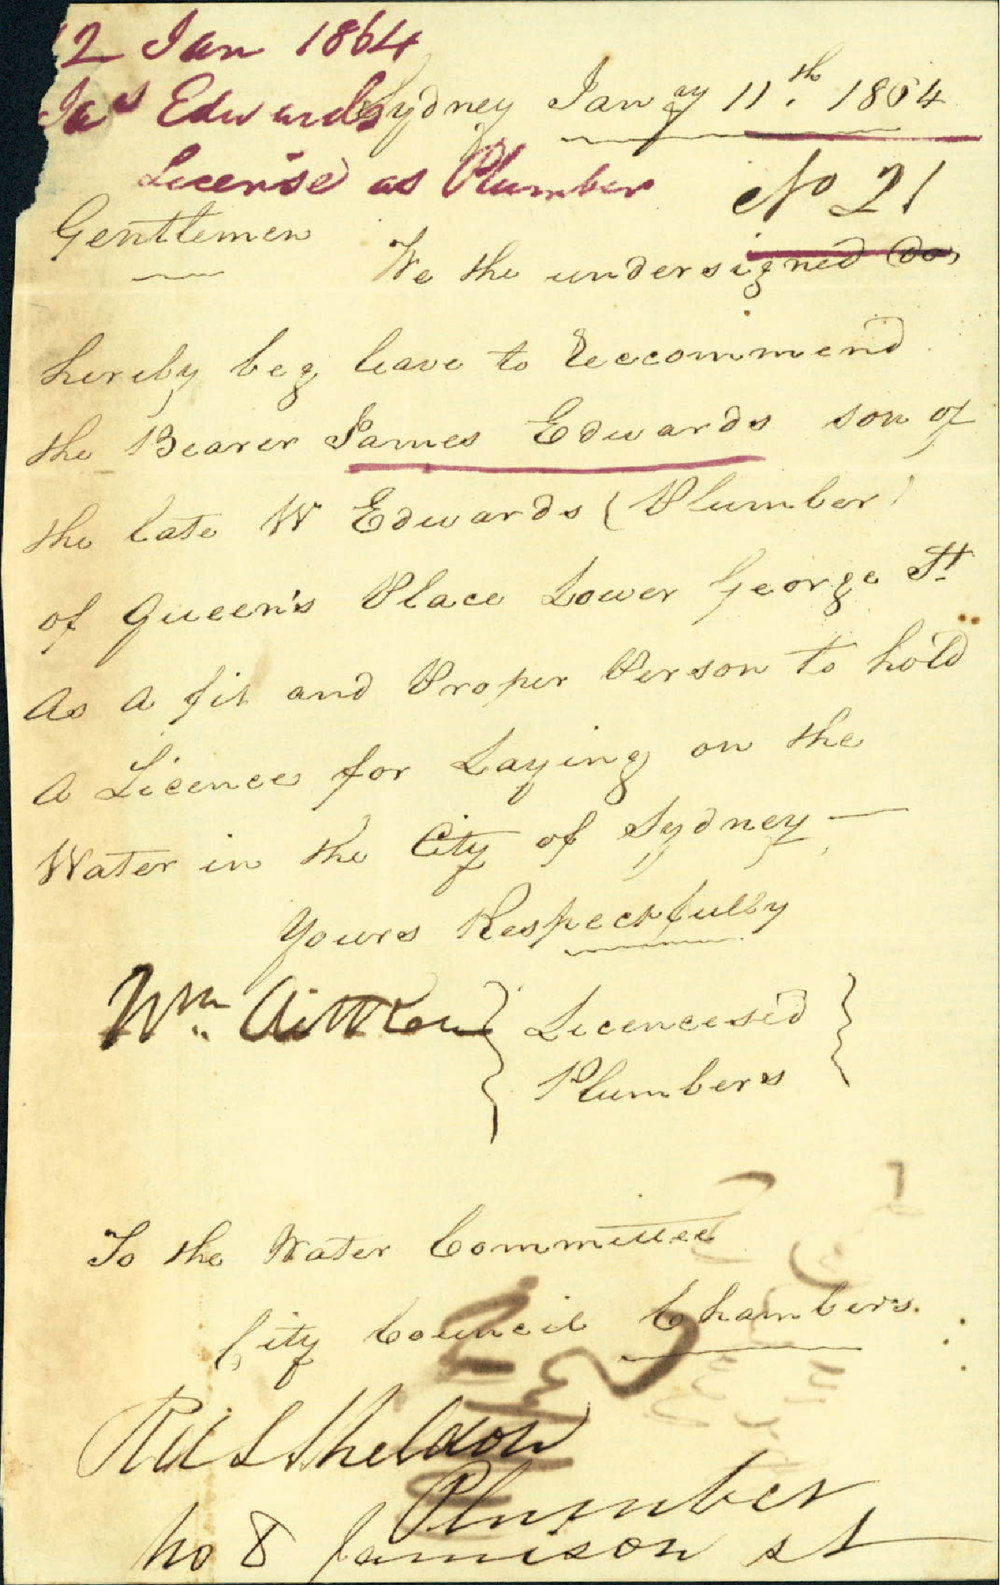 12 Jan 1864
Jas Edwards
License as Plumber
Sydney Janay 11th. 1864
No 21
Gentlemen
We the undersigned do
hereby beg leave to Reccommend
the Bearer James Edwards son of
the late W Edwards (Plumber)
of Queen's Place Lower George St.
As A fit and Proper Person to hold
A Licence for Laying on the
Water in the City of Sydney —
Yours Respectfully
Wm. Aitken } Licencesed }
Plumbers
To the Water Committee
City Council Chambers.
Rd S Sheldon
Plumber
No 8 Jamison st